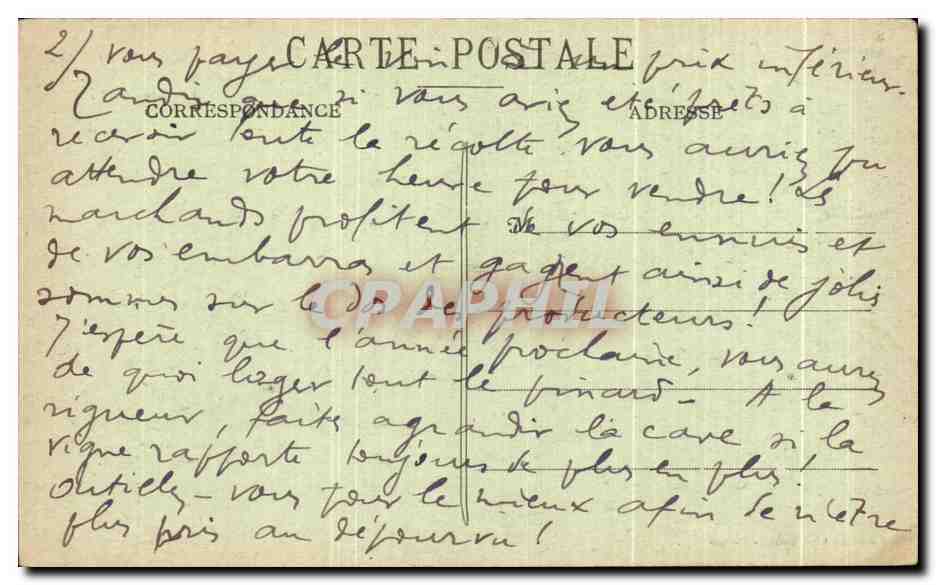 CARTE POSTALE
CORRESPONDANCE
ADRESSE
M
2/ vous payer le vin à un prix inférieur.
Tandis que si vous aviez été prêts à
recevoir toute la récolte vous auriez pu
attendre votre heure pour vendre! Les
marchands profitent de vos ennuis et
de vos embarras et gagnent ainsi de jolies
sommes sur le dos des producteurs!
J'espère que l'année prochaine, vous aurez
de quoi loger tout le pinard - A la
rigueur, faites agrandir la cave si la
vigne rapporte toujours de plus en plus!
Outillez-vous pour le mieux afin de n'être
plus pris au dépourvu!
CPAPHIL